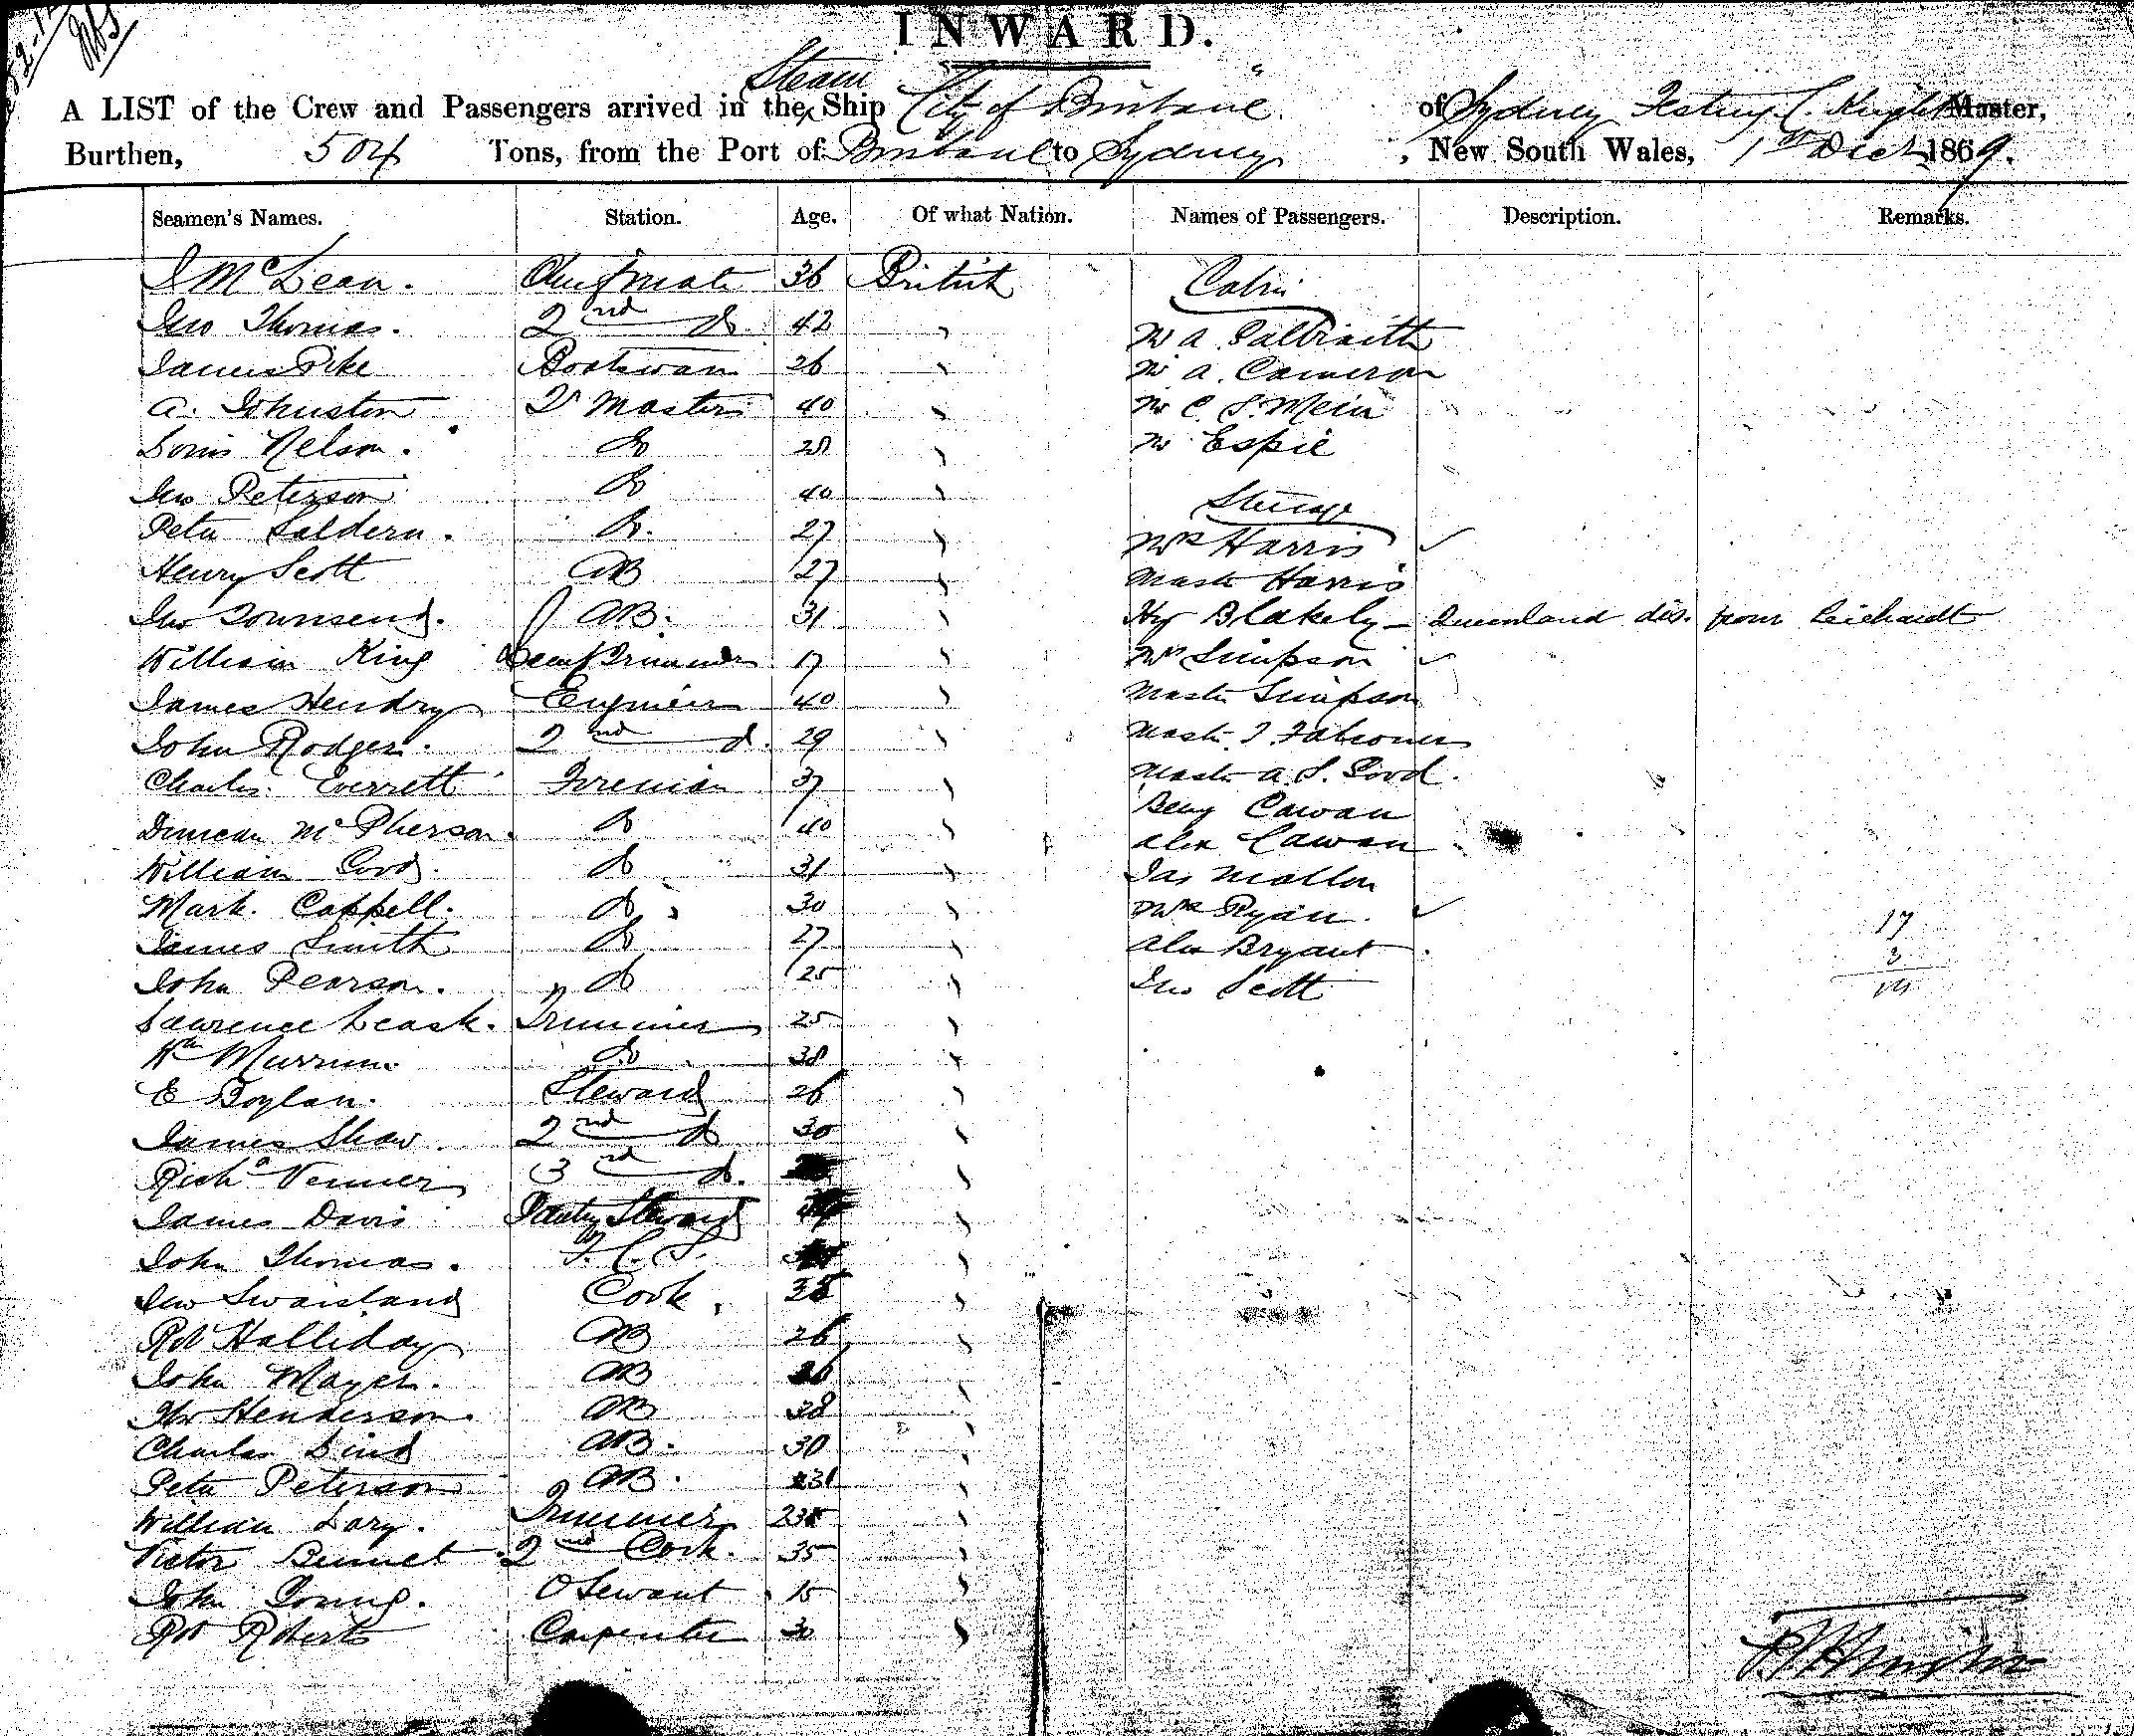 INWARD.
A LIST of the Crew and Passengers arrived in the Steam Ship "City of Brisbane" of Sydney C. Knight Master,
Burthen, 504 Tons, from the Port of Brisbane to Sydney, New South Wales, 1st Decr 1869.
Seamen's Names. Station. Age. Of what Nation. Names of Passengers. Description. Remarks.
J McLean. Chief mate 36 British Cabin
Jno Thomas. 2nd do. 42 "
Mr A. Galbraith
James Pike Boatswain 26 "
Mr A. Cameron
A. Johnston Qr Master 40 "
Mr C. S. Mein
Louis Nelson. do 28 "
Mr Espie
Jno Peterson do 40 "
Steerage
Peter Saldern. do. 27 "
Mrs Harris ✓
Henry Scott AB 27 "
Mastr Harris
Jno Townsend. AB. 31 "
Hy Blakely - Queensland dis. from Leichardt
William King Trimmer 17 "
Mrs Simpson ✓
James Hendry Engineer 40 "
Mastr Simpson
John Rodger. 2nd do. 29 "
Mastr J. Falconer
Charles Everrett Fireman 37 "
Mastr A. S. Good.
Duncan McPherson. do 40 "
Benj Cawan
Alex Cawan
William Good. do 31 "
Jas Mallon
Mark Cappell. do 30 "
Mrs Ryan. ✓ 17
James Smith do 27 "
Alex Bryant. 3
John Pearson. do 25 "
Jno Scott 14
Lawrence Leask. Trimmer 25 "
Wm Murrum. do 38 "
E Boylan. Steward 26 "
James Shaw 2nd do 30 "
Richd Venner 3rd do. "
James Davis Pantry Steward "
John Thomas. F. C. S. "
Jno Swaisland Cook. "
Robt Halliday AB 26 "
John Mayer. AB 26 "
Henderson. AB 38 "
Charles Lind AB. 30 "
Peter Peterson AB. 31 "
William Lary. Trimmer "
Victor Bennet 2nd Cook. 35 "
John Young. O Sewant 15 "
Robt Roberts Carpenter 30 "